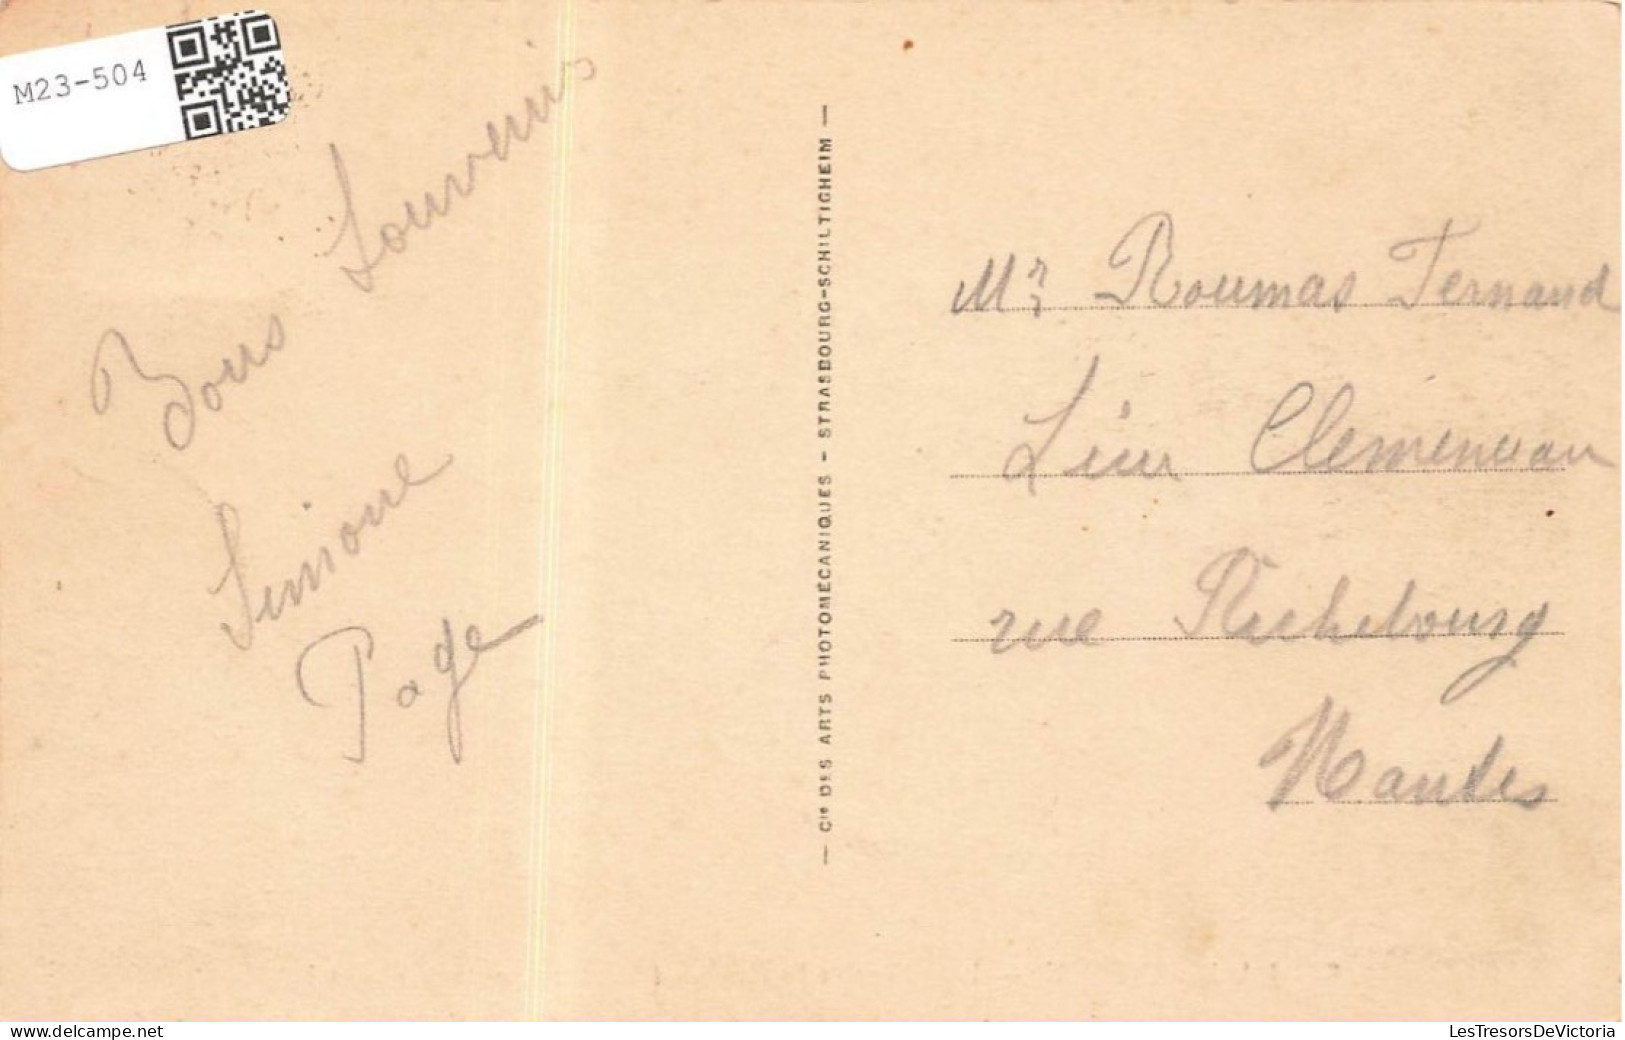 M23-504
Bons Souvenirs
Simone
Page
— Cie DES ARTS PHOTOMÉCANIQUES - STRASBOURG-SCHILTIGHEIM —
Mr Roumas Fernand
Clemenceau
rue Richebourg
Nantes
www.delcampe.net
LesTresorsDeVictoria